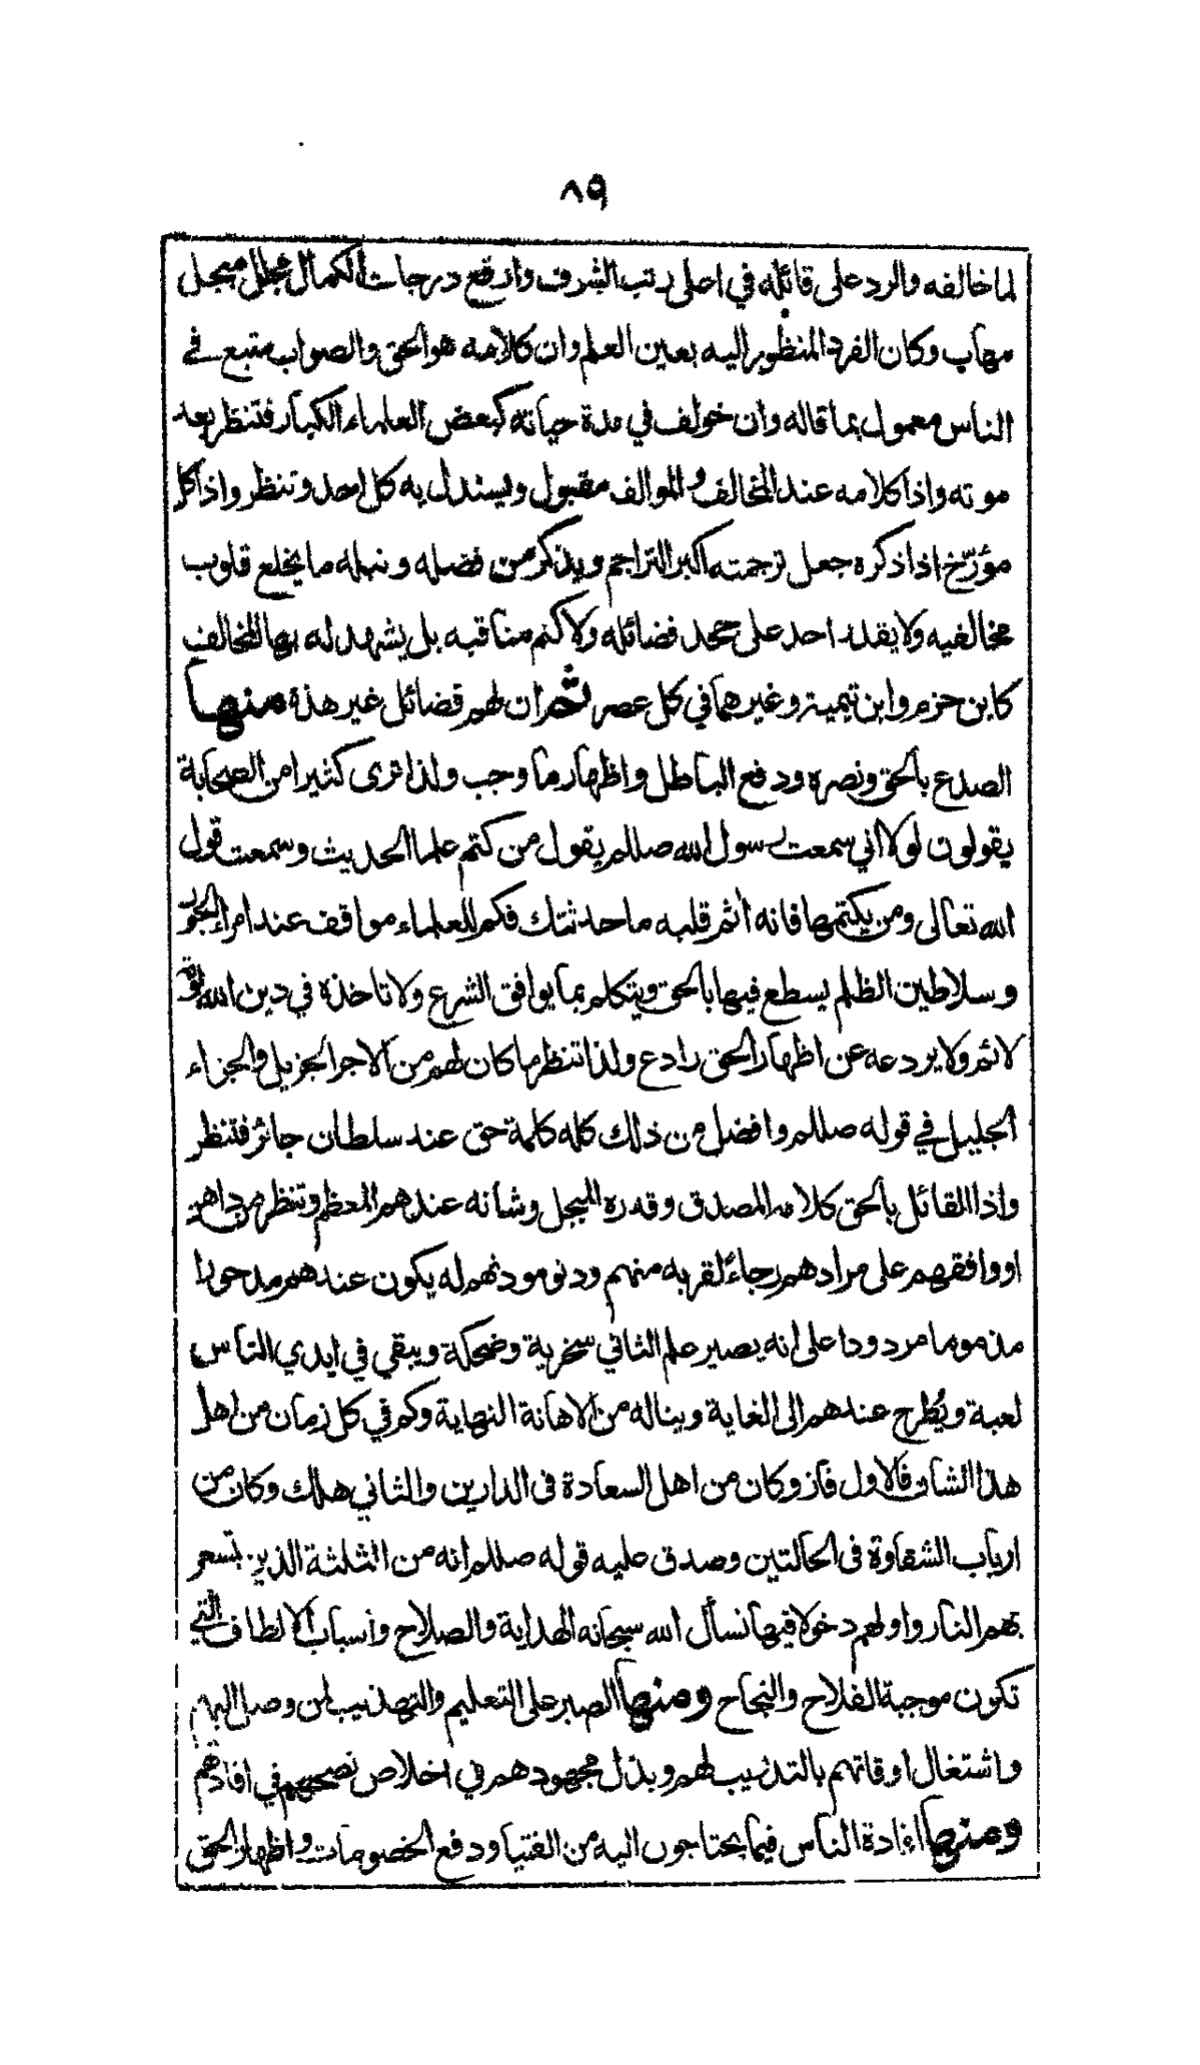 ٨٩
لما خالفه والرد على قائله في اعلى رتب الشرف وارفع درجات الكمال مجلل مبجل
مهاب وكان الفرد المنظور اليه بعين العلم وان كلامه هو الحق والصواب متبع في
الناس معمول بما قاله وان خولف في مدة حياته كبعض العلماء الكبار فتنظر بعد
موته واذا كلامه عند المخالف والموالف مقبول ويستدل به كل احد وتنظر واذا كل
مؤرّخ اذا ذكره جعل ترجمته اكبر التراجم ويذكر من فضله ونبله ما يخلع قلوب
مخالفيه ولا يقدر احد على جحد فضائله ولا كتم مناقبه بل يشهد له بها المخالف
كابن حزم وابن تيمية وغيرهما في كل عصر ثم ان لهم فضائل غير هذة منها
الصدع بالحق ونصره ودفع الباطل واظهار ما وجب ولذا ترى كثيرا من الصحابة
يقولون لولا اني سمعت رسول الله صللم يقول من كتم علما الحديث وسمعت قول
الله تعالى ومن يكتمها فانه اثم قلبه ما حدثتك فكم للعلماء مواقف عند امراء الجور
وسلاطين الظلم يسطع فيها بالحق ويتكلم بما يوافق الشرع ولا تاخذه في دين الله لومة
لائم ولا يردعه عن اظهار الحق رادع ولذا تنظر ما كان لهم من الاجر الجزيل والجزاء
الجليل في قوله صللم وافضل من ذلك كله كلمة حق عند سلطان جائر فتنظر
واذا القائل بالحق كلامه المصدق وقدره المبجل وشانه عندهم المعظم وتنظر من داهن
او وافقهم على مرادهم رجاءً لقربه منهم ودنو مودتهم له يكون عندهم مدحورا
مذموما مردودا على انه يصير علم الثاني سخرية وضحكة ويبقى في ايدي الناس
لعبة ويُطرح عندهم الى الغاية ويناله من الاهانة النهاية وكم في كل زمان من اهل
هذا الشان فالاول فاز وكان من اهل السعادة فى الدارين والثاني هلك وكان من
ارباب الشقاوة فى الحالتين وصدق عليه قوله صللم انه من الثلثة الذين تسعر
بهم النار واولهم دخولا فيها نسأل الله سبحانه الهداية والصلاح وأسباب الالطاف التي
تكون موجبة الفلاح والنجاح ومنها الصبر على التعليم والتهذيب لمن وصل اليهم
واشتغال اوقاتهم بالتدريب لهم وبذل مجهودهم في اخلاص نصحهم في افادتهم
ومنها افادة الناس فيما يحتاجون اليه من الفتيا ودفع الخصومات واظهار الحق